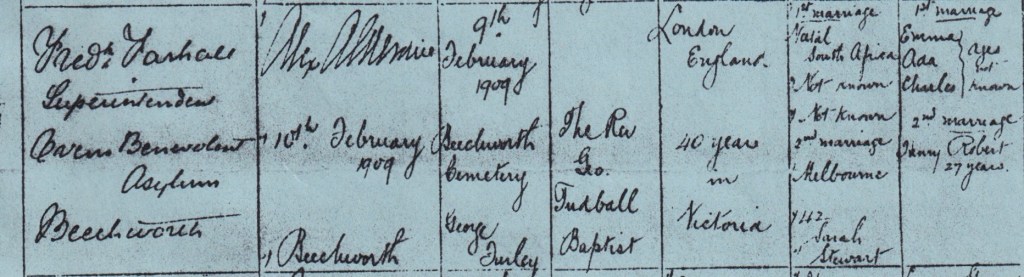 Fred. Farhall
Superintendent
Ovens Benevolent
Asylum
Beechworth
10th. February
1909
Beechworth
9th.
February
1909
Beechworth
Cemetery
George
Turley
The Rev
Geo.
Tudball
Baptist
London
England.
40 years
in
Victoria
1st marriage
Natal
South Africa
Not known
Not known
2nd marriage
Melbourne
42
Sarah
Stewart
1st marriage
Emma
Ada
Charles
ages
not
known
2nd marriage
Fanny Robert
27 years.